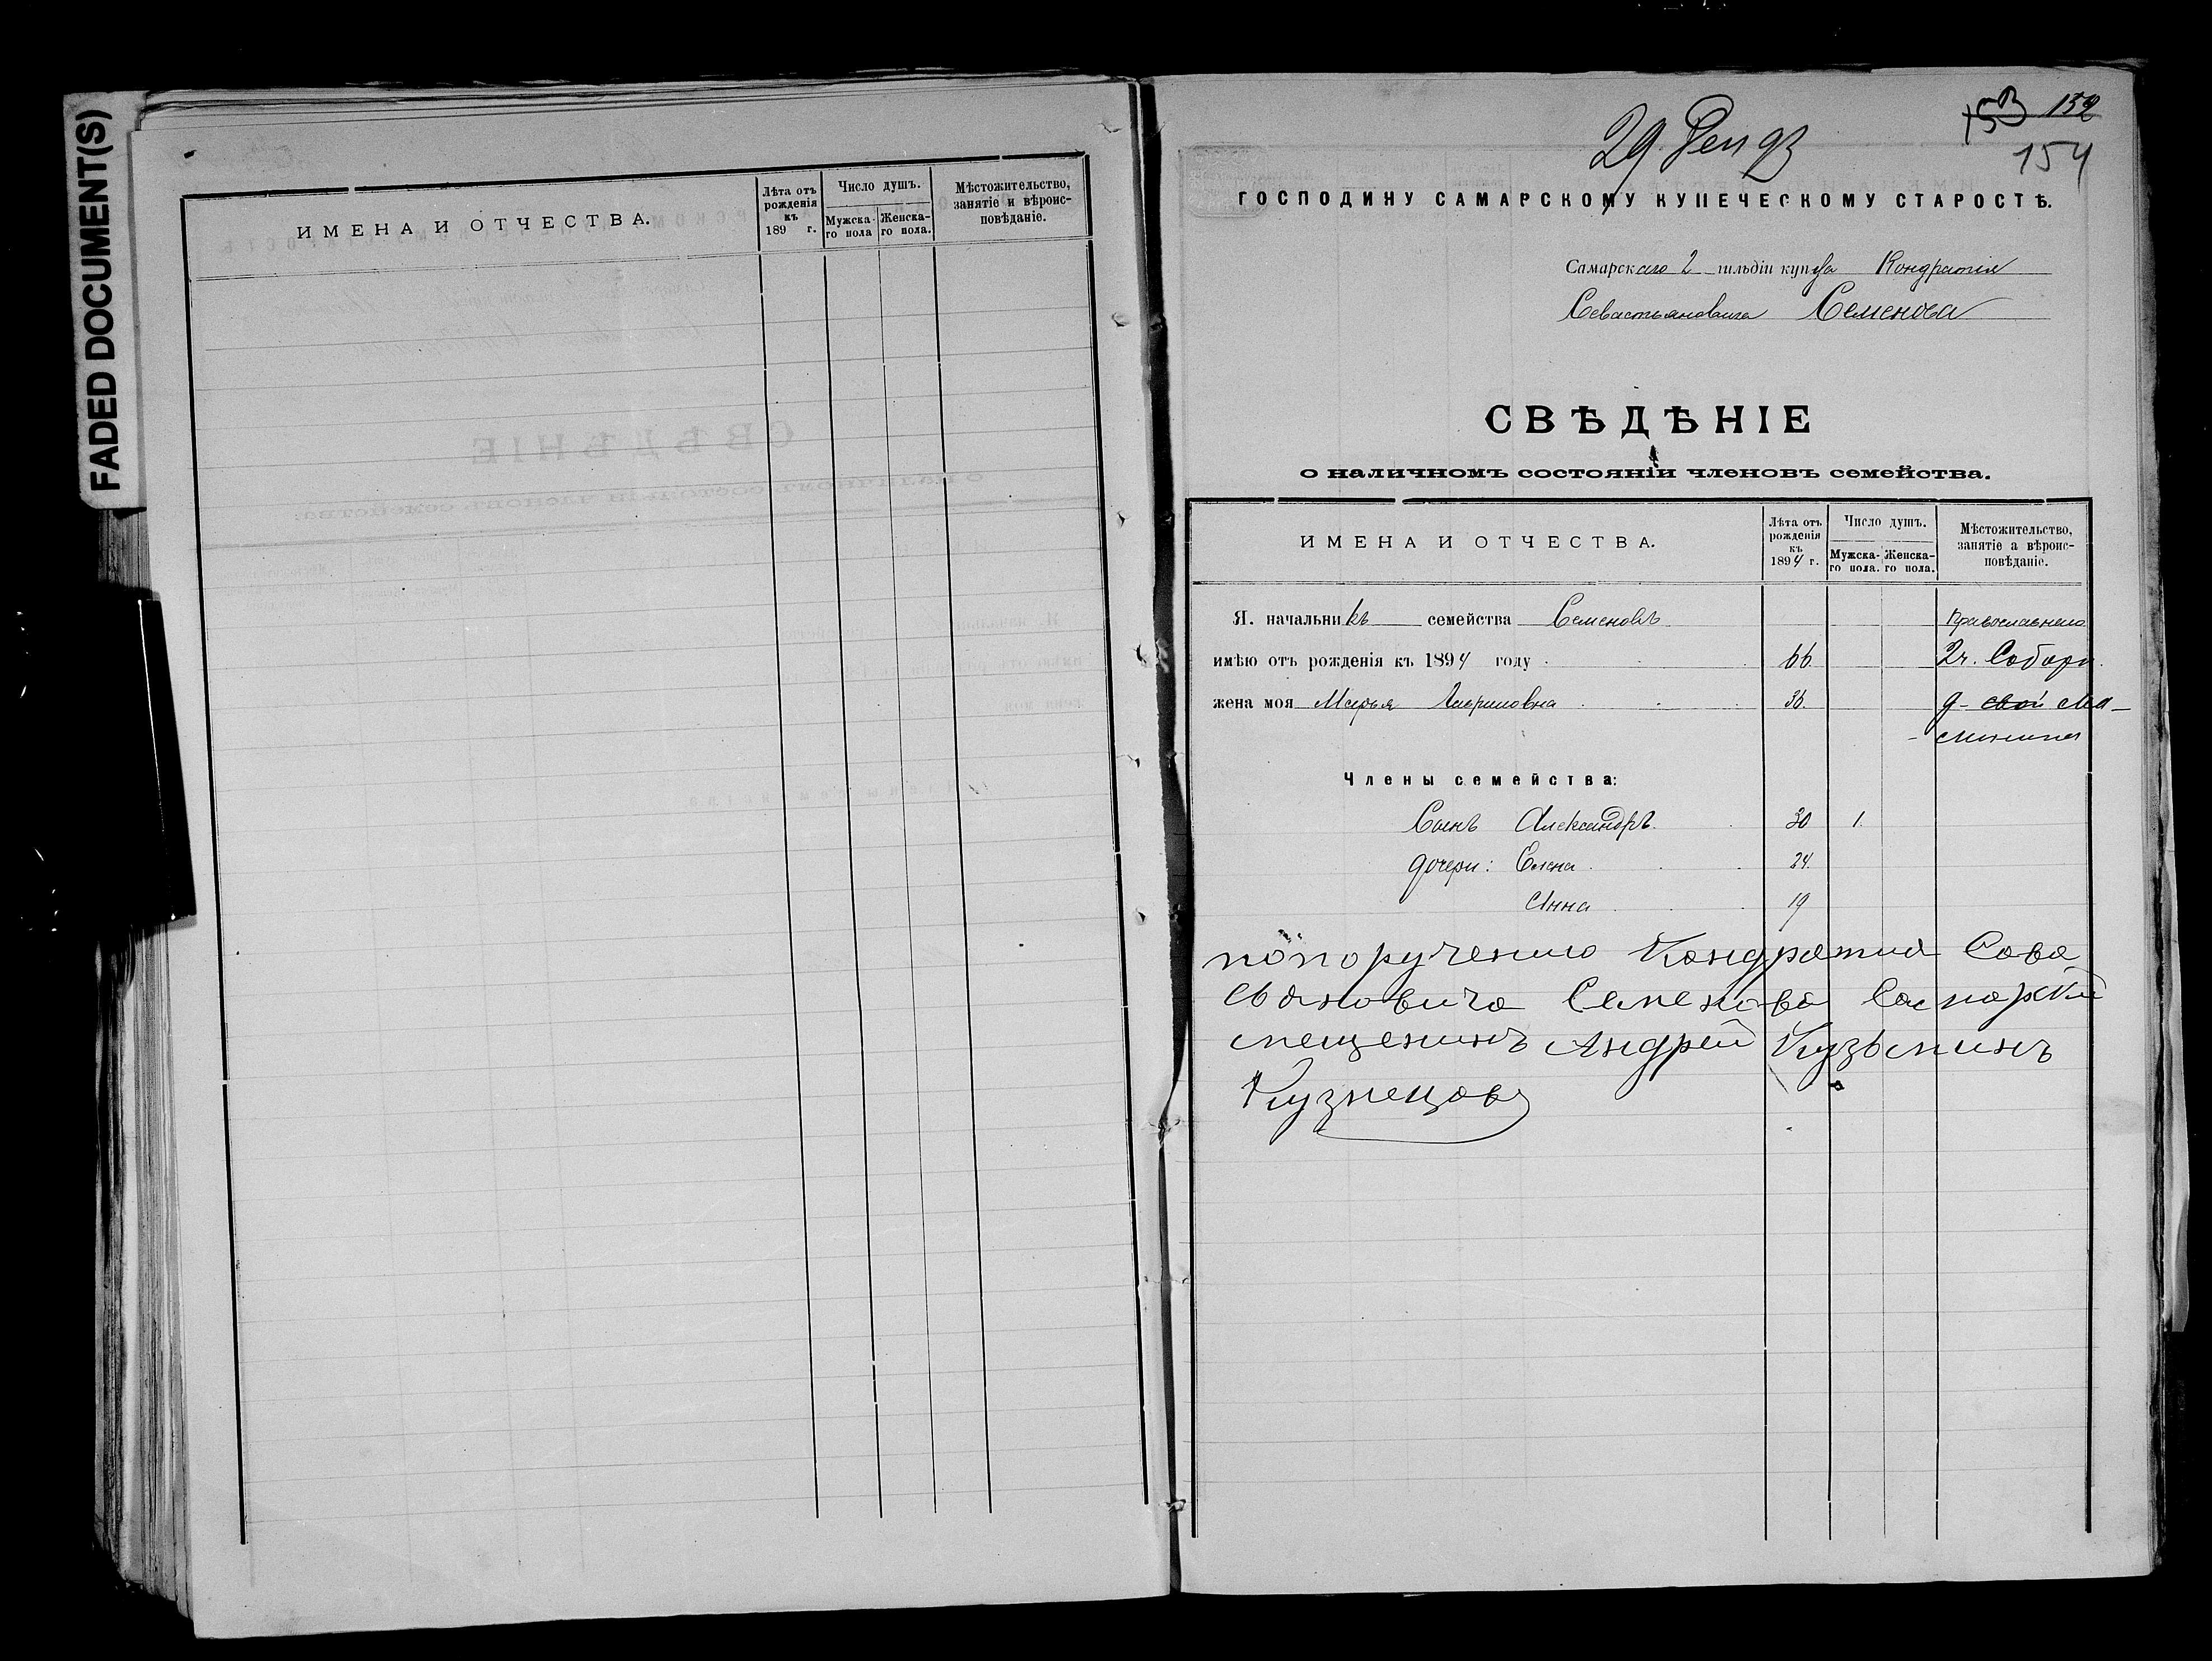 FADED DOCUMENT(S)
ИМЕНА И ОТЧЕСТВА.
Лѣта отъ рожденія къ 189 г.
Число душъ.
Мужска-го пола
Женска-го пола.
Мѣстожительство, занятіе и вѣроис-повѣданіе.
153 152
29 Ден 93
154
ГОСПОДИНУ САМАРСКОМУ КУПЕЧЕСКОМУ СТАРОСТѢ.
Самарскаго 2 гильдіи купца Кондратія
Севастьяновича Семенова
СВѢДѢНІЕ
о наличномъ состояніи членовъ семейства.
ИМЕНА И ОТЧЕСТВА.
Лѣта отъ рожденія къ 1894 г.
Число душъ.
Мужска-го пола.
Женска-го пола.
Мѣстожительство, занятіе а вѣроис-повѣданіе.
Я. начальникъ семейства Семеновъ Православнаго
имѣю отъ рожденія къ 1894 году 66 2ч. Соборн.
жена моя Марья Гавриловна 36 д- свой
Члены семейства:
Сынъ Александръ 30 1.
дочери: Елена 24.
Анна 19
попорученію Кондратия Сева
сьяновича Семенова Самарскій
мещенинъ Андрей Кузьминъ
Кузнецовъ